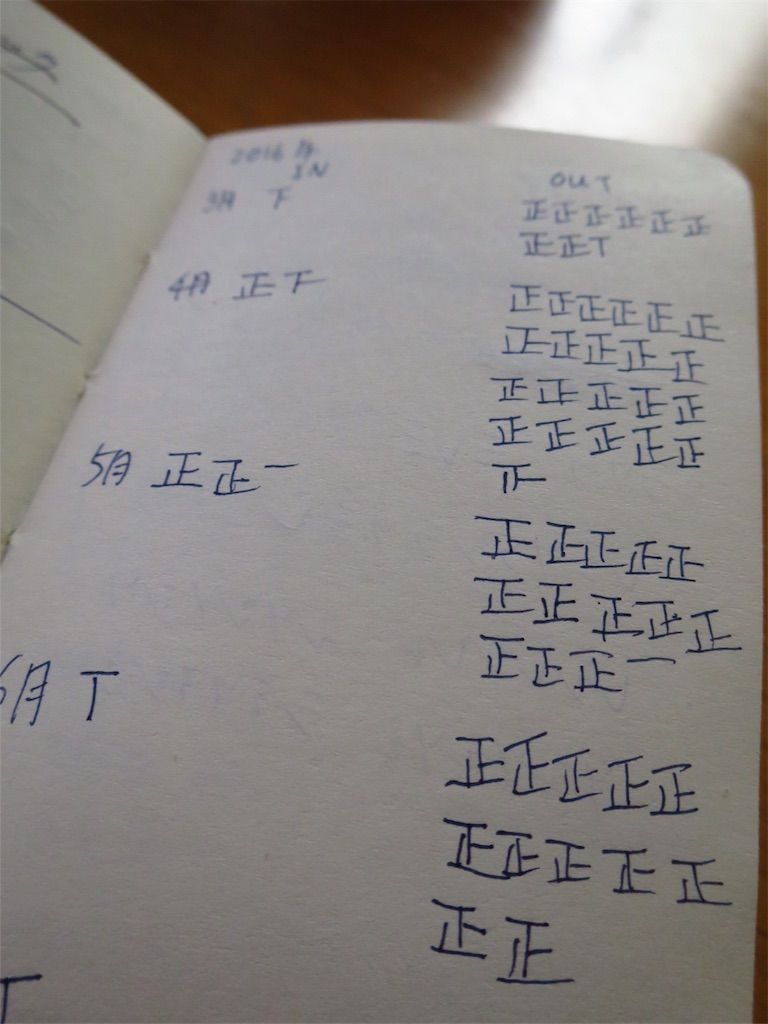 2016年
IN OUT
3月 下 正正正正正正
正正T
4月 正下 正正正正正正
正正正正正
正正正正正
正正正正正
正
5月 正正一 正正正正正
正正正正正正
正正正一
6月 T 正正正正正
正正正正正
正正
T